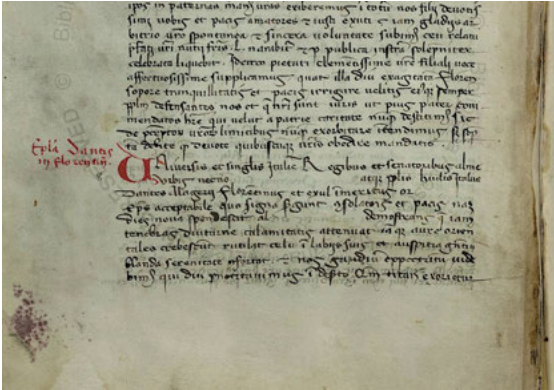 ipos in paternas manus vras exiberemus i totū nos filii devoti
sini vobis et pacis amatores & iusti exuti & iam gladiis ar
bitrio vro spontanea & sincera voluntate subimus ceu relatu
nutii fris L. narrabit & p publica instra solepniter
celebrata liquebit. Idcirco pietati clementissime vre filiali voce
affectuosissime supplicamus quat illa diu exagitata floren
sopore tranquilitatis et pacis irrigare velitis eiusq semper
pplm defensantes nos et q nri sunt iuris ut pius pater com
mendatos hre qui velut a patrie caritate nuq destitimus sic
de preceptor vror limitibus nuq exorbitare itendimus s semp
ta debite q devote quibuscuq vris obedire mandatis
Epla Dantis
in florentin
Universis et singlis Italie Regibus et senatoribus alme
urbis necno pplis humilis Italus
Dantes Allagerii florentinus et exul imeritus or
Eps acceptabile quo signa srgunt osolatois et pacis nam
dies nova splendescit al demostrans q iam
tenebras diuturne calamitatis attenuat iaq aure orien
tales crebescut rutilat celu i labiis suis et auspitia gentiu
blanda serenitate ofortat & nos gaudiu expectatu vide
bimus qui diu pnoctavimus i desto Etm titan exorietur